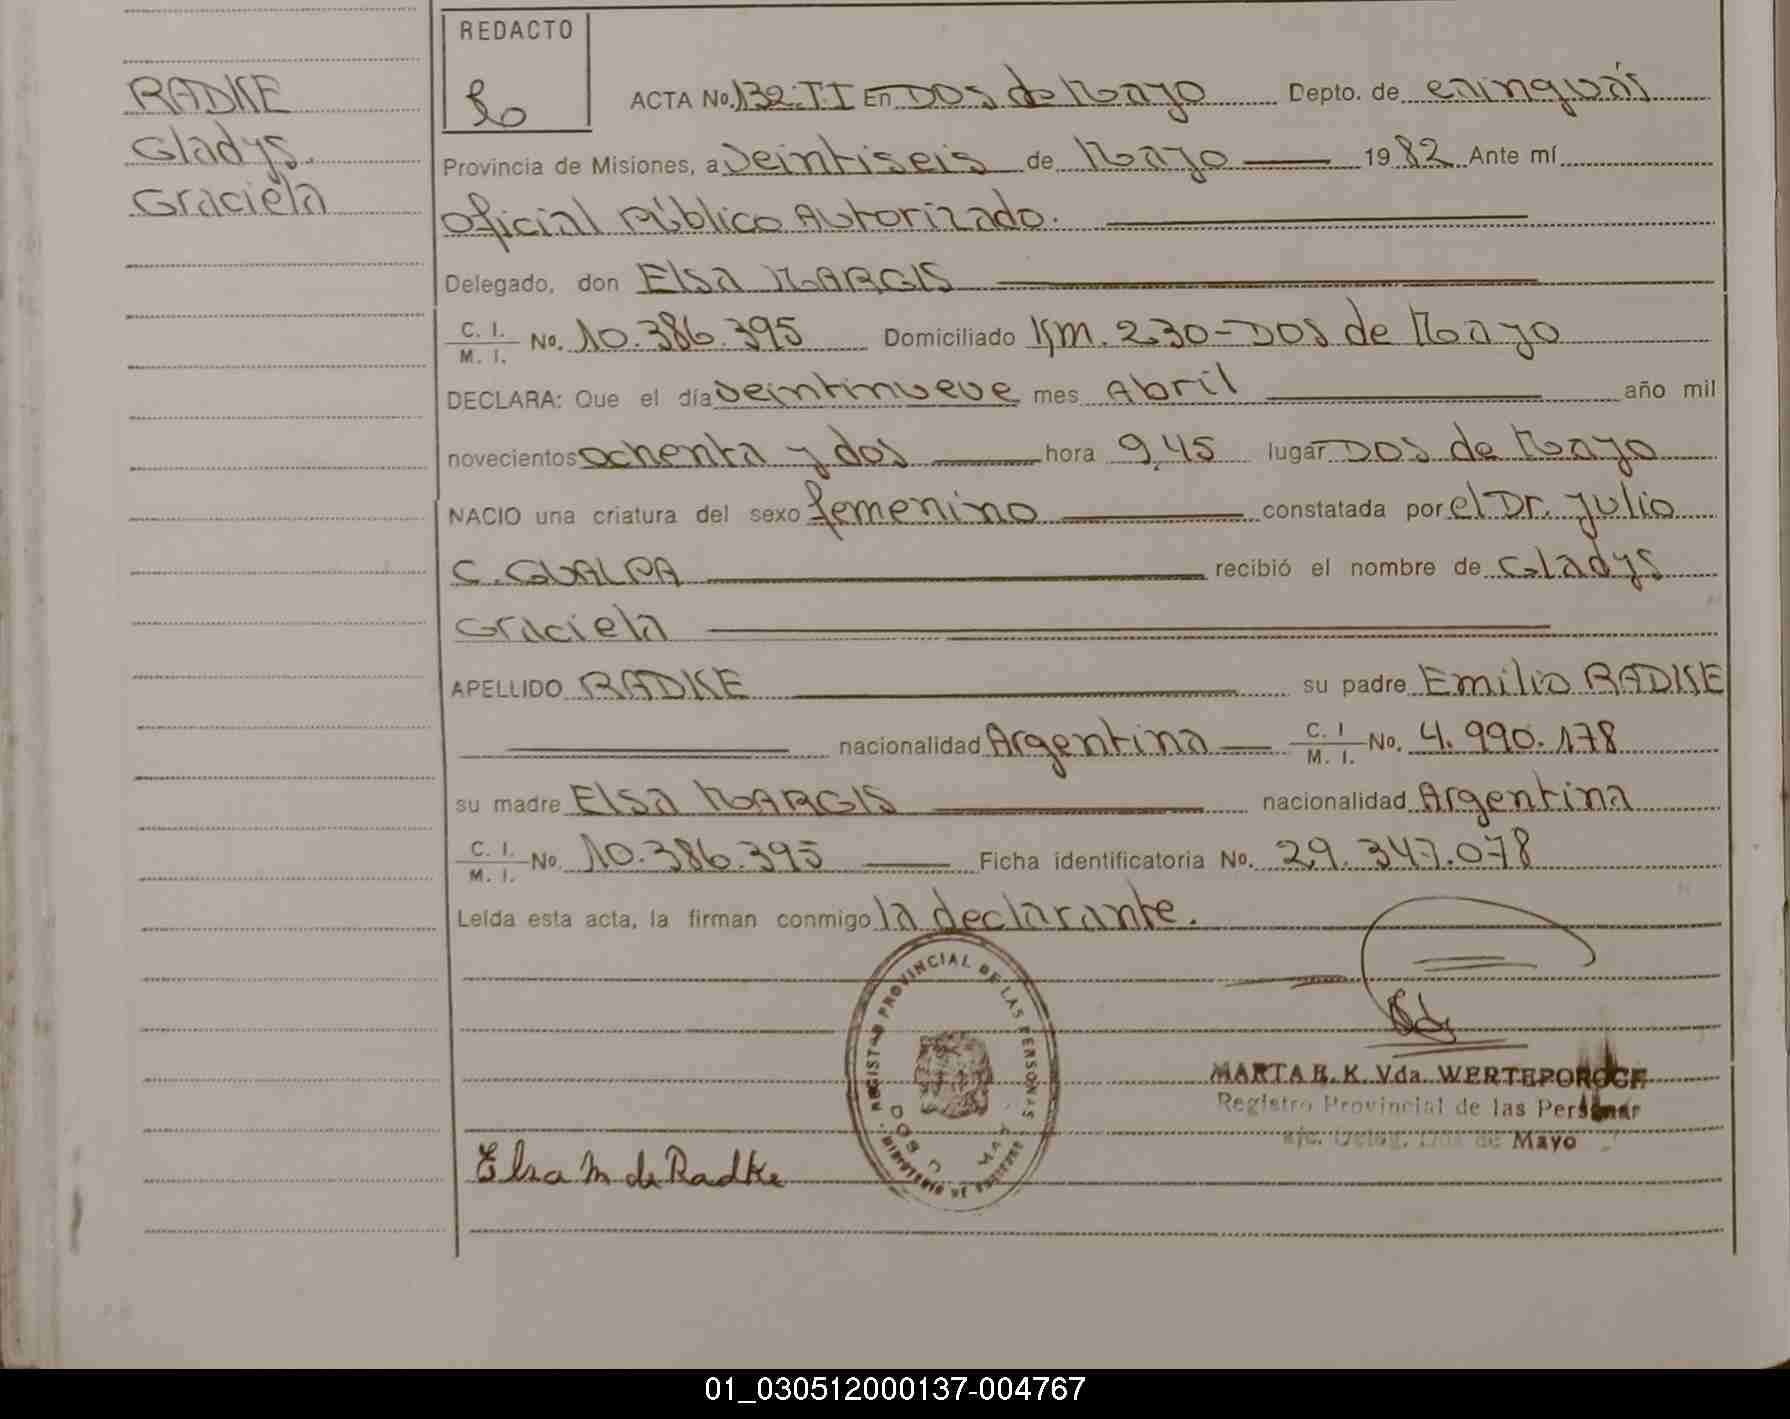 RADKE
Gladys
Graciela
REDACTO
ACTA No. 132.T.I En DOS de Mayo Depto. de Cainguás
Provincia de Misiones, a veintiseis de Mayo 1982 Ante mí
Oficial Público Autorizado.
Delegado, don Elsa MARGIS
C. I.
M. I. No. 10.386.395 Domiciliado Km. 230-DOS de Mayo
DECLARA: Que el día veintinueve mes Abril año mil
novecientos ochenta y dos hora 9,45 lugar DOS de Mayo
NACIO una criatura del sexo femenino constatada por el Dr. Julio
C. GUALPA recibió el nombre de Gladys
Graciela
APELLIDO RADKE su padre Emilio RADKE
nacionalidad Argentina C. I
M. I. No. 4.990.178
su madre Elsa MARGIS nacionalidad Argentina
C. I.
M. I. No. 10.386.395 Ficha identificatoria No. 29.347.078
Leída esta acta, la firman conmigo la declarante.
REGISTRO PROVINCIAL DE LAS PERSONAS
MARTA E. K. Vda. WERTEPOROCE
Registro Provincial de las Personas
Deleg. Dos de Mayo
Elsa M de Radke
01_030512000137-004767